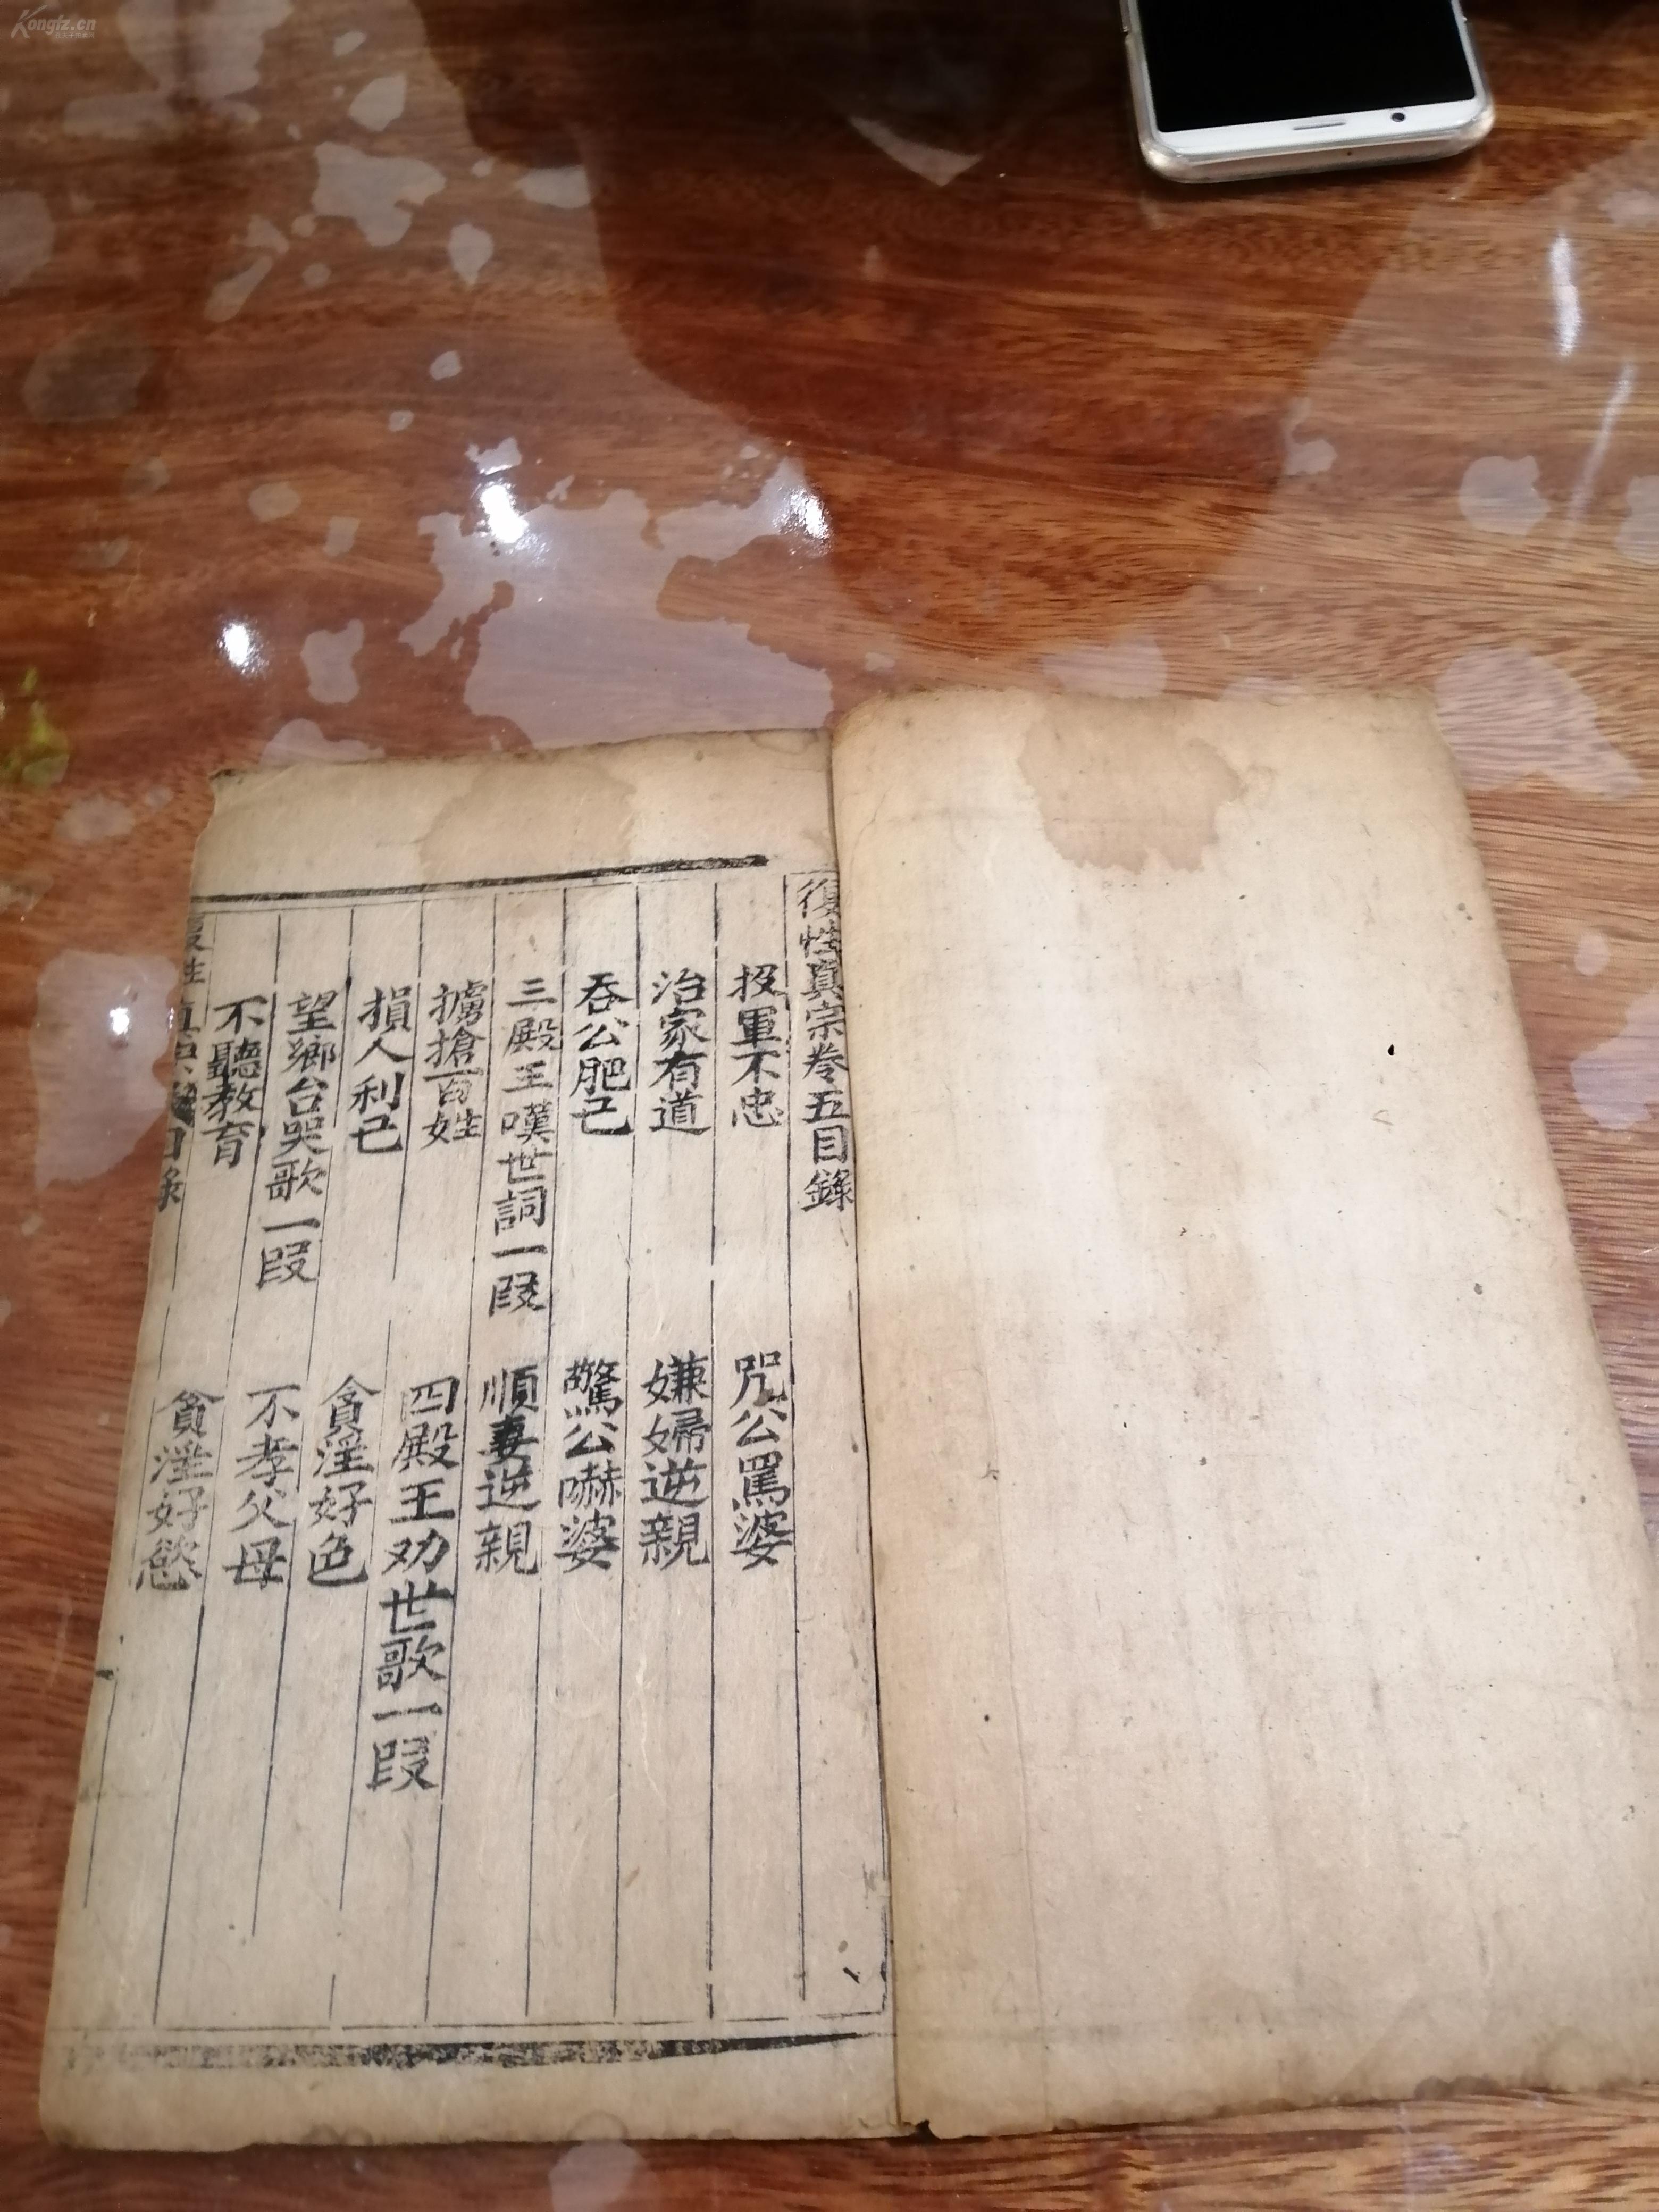 復性真宗卷五目錄
投軍不忠
咒公罵婆
治家有道
嫌婦逆親
吞公肥己
驚公嚇婆
三殿王嘆世詞一段
順妻逆親
擄搶百姓
四殿王劝世歌一段
損人利己
貪淫好色
望鄉台哭歌一段
不孝父母
不聽教育
貪淫好慾
目錄
Kongfz.cn